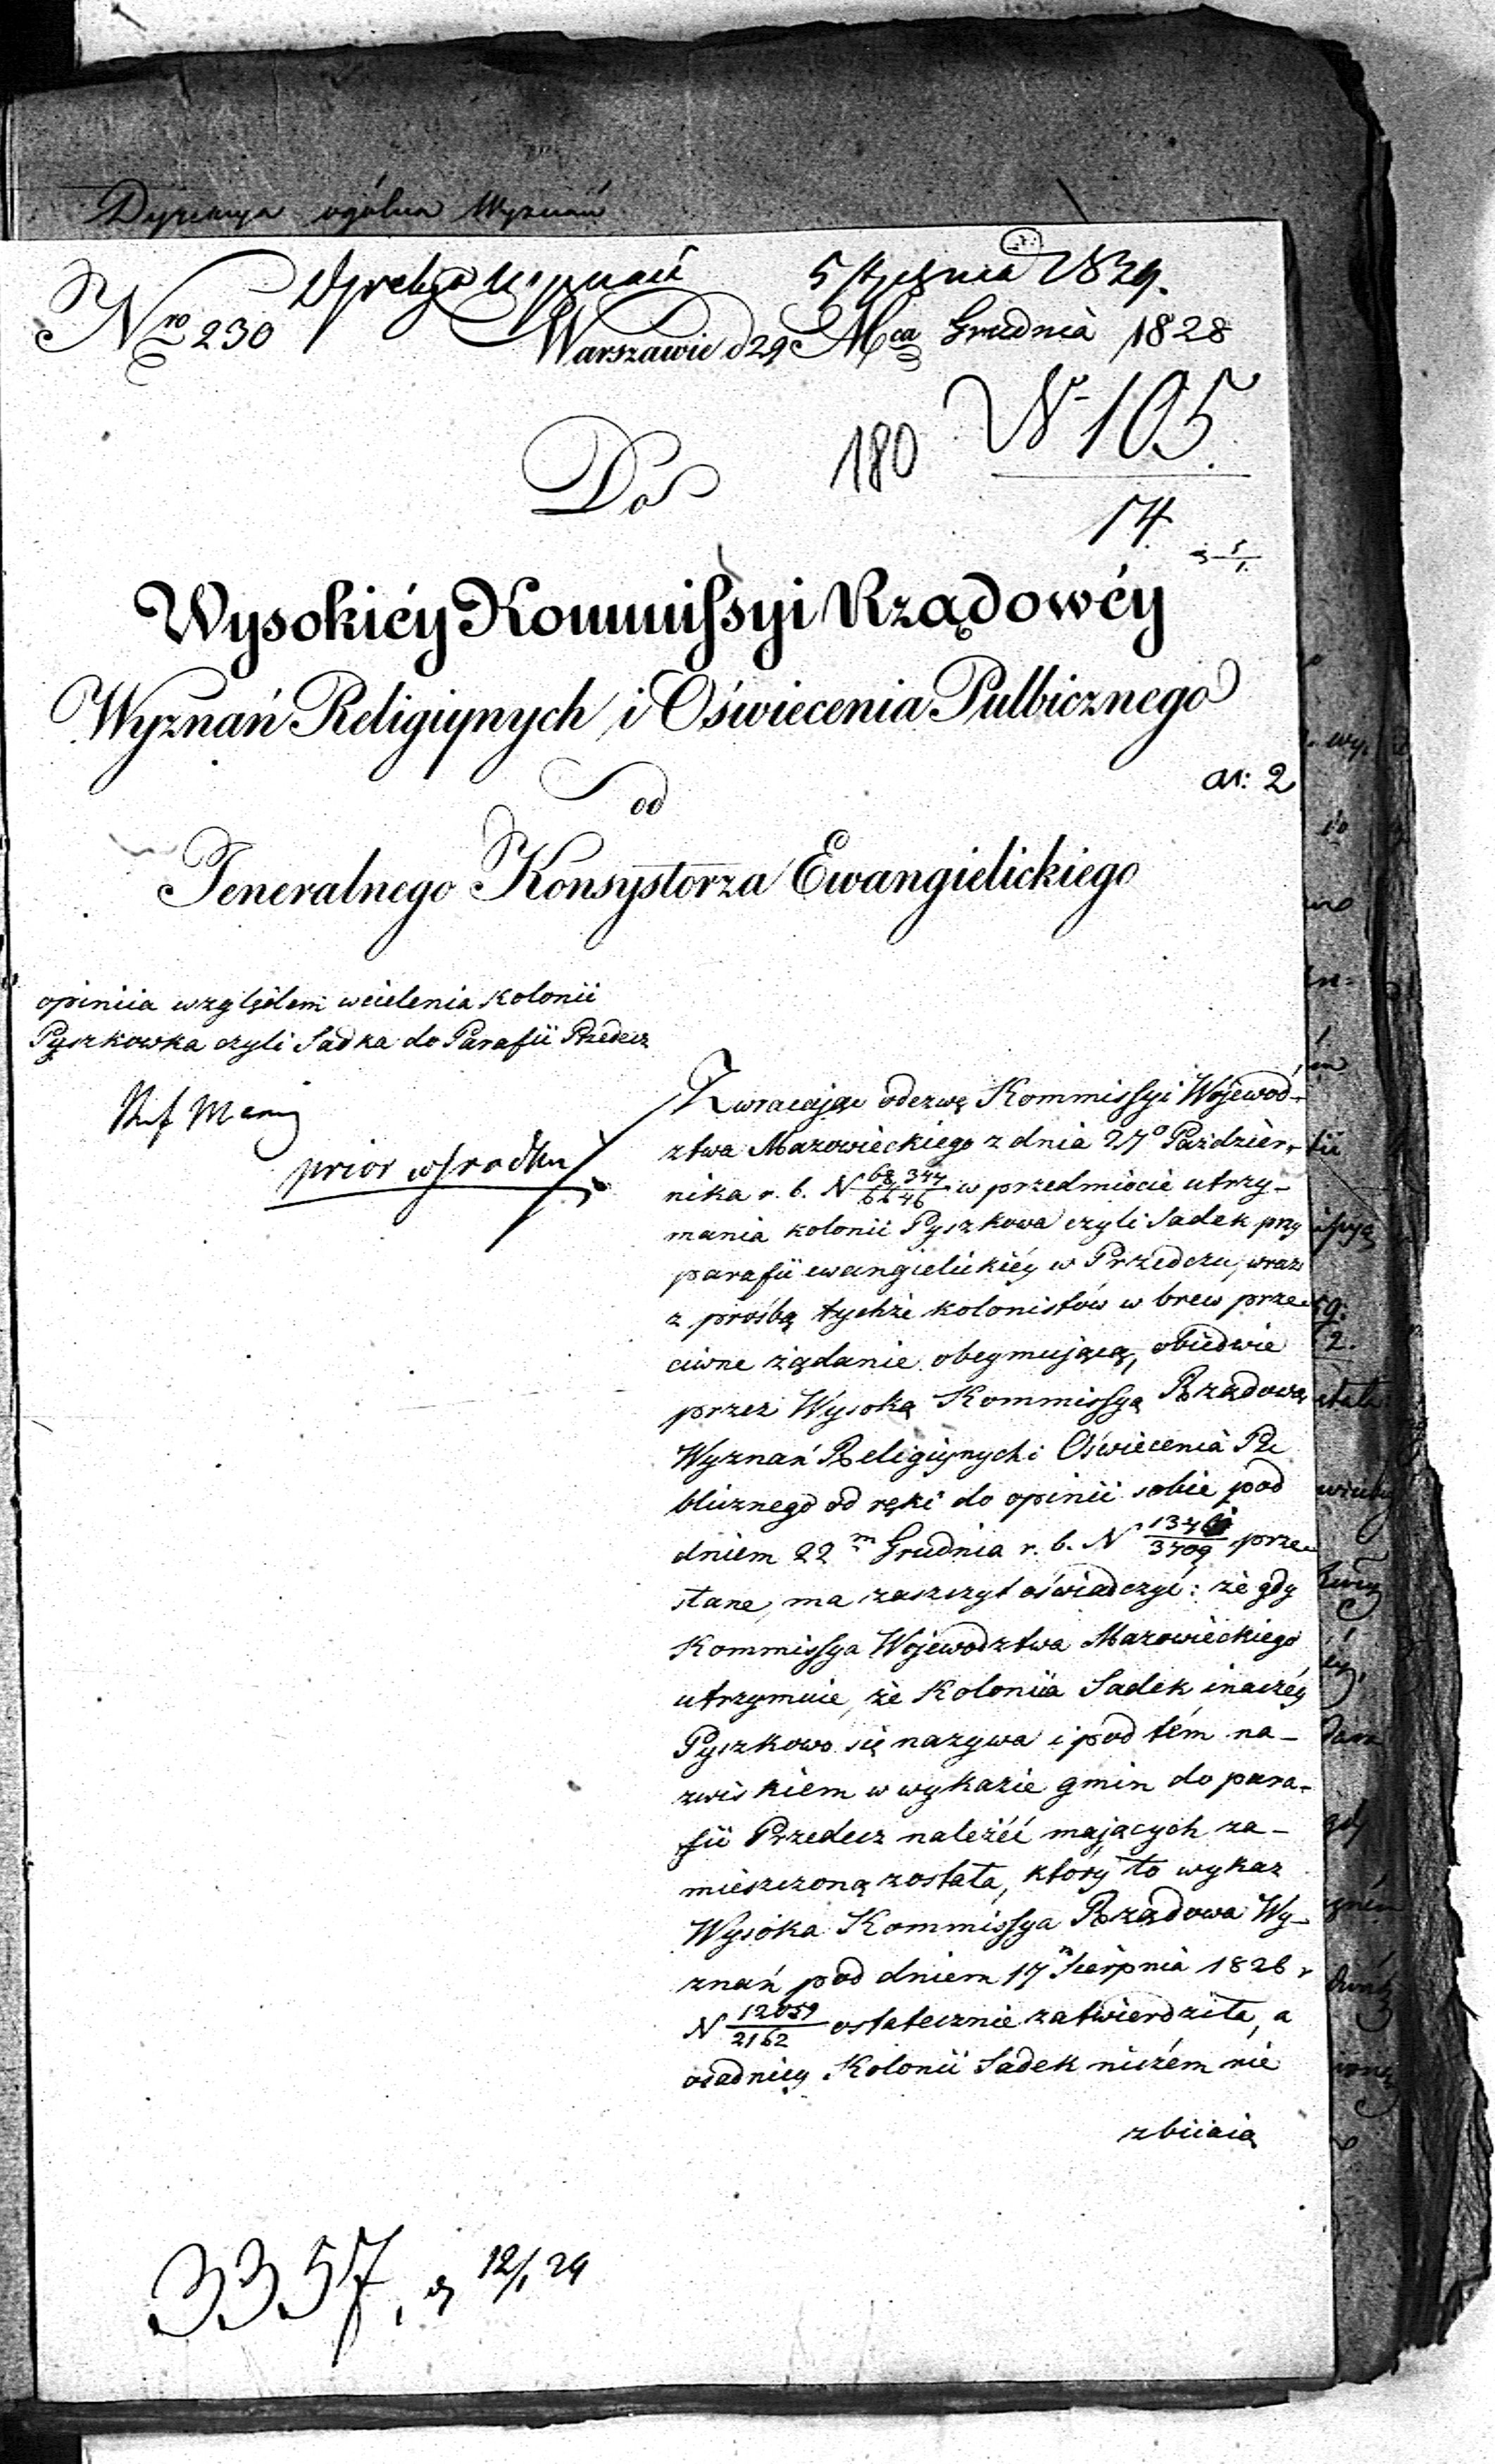 Dyrekcya ogólna Wyznań
Dyrekcya Wyznań 5 Stycznia 1829.
Nro 230 Warszawie d 29 Mca Grudnia 1828
Do 180 N 105
14
5/1.
Wysokiéy Kommissyi Rządowéy
Wyznań Religiynych i Oświecenia Pulbicznego
ar: 2
od
Jeneralnego Konsystorza Ewangielickiego
opiniia względem wcielenia kolonii
Pyszkowka czyli Sadka do Parafii Przedecz
prior w środku
Zwracaiąc odezwę Kommissyi Wojewod-
ztwa Mazowieckiego z dnia 27o Paździer-
nika r. b. N 68344/6646 w przedmiocie utrzy-
mania kolonii Pyszkowa czyli Sadek przy
parafii ewangielickiéy w Przedczu, wraz
z prośbą tychże kolonistów w brew prze-
ciwne żądanie obeymującą, obiedwie
przez Wysoką Kommissyą Rządową
Wyznań Religiynych i Oświecenia Pu
blicznego od ręki do opinii sobie pod
dniem 22m Grudnia r. b. N /3709 prze-
słane, ma zaszczyt oświadczyć: że gdy
Kommissya Wojewodztwa Mazowieckiego
utrzymuie, że Koloniia Sadek inaczéy
Pyszkowo się nazywa i pod tém na-
zwiskiem w wykazie gmin do para-
fii Przedecz należéć mających za-
mieszczoną została, który to wykaz
Wysoka Kommissya Rządowa Wy-
znań pod dniem 17m Sierpnia 1826 r
N 12059/2162 ostatecznie zatwierdziła, a
osadnicy Kolonii Sadek niczém nie
zbiiaią
3357, 12/1 29